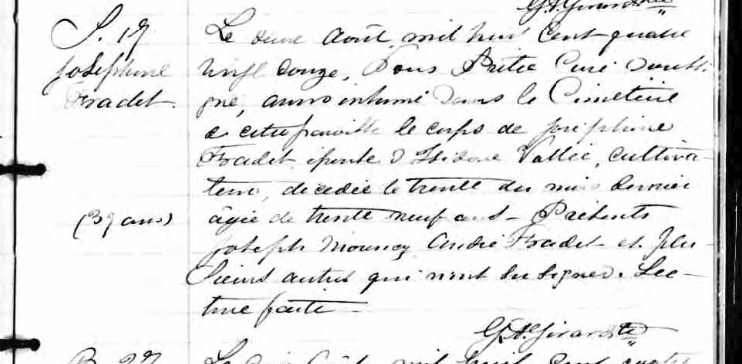 G. A. Girard Ptre
S. 19
Josephine
Fradet.
(39 ans)
Le deux Août, mil huit cent quatre
vingt douze, Nous Prêtre Curé soussi-
gné, avons inhumé dans le Cimetière
de cette paroisse le corps de Joséphine
Fradet épouse d'Isidore Vallée, cultiva-
teur, décédée le trente du mois dernier
âgée de trente neuf ans - Présents
Joseph André Fradet et plu-
sieurs autres qui n'ont su signer. Lec-
ture faite
G. A. Girard Ptre